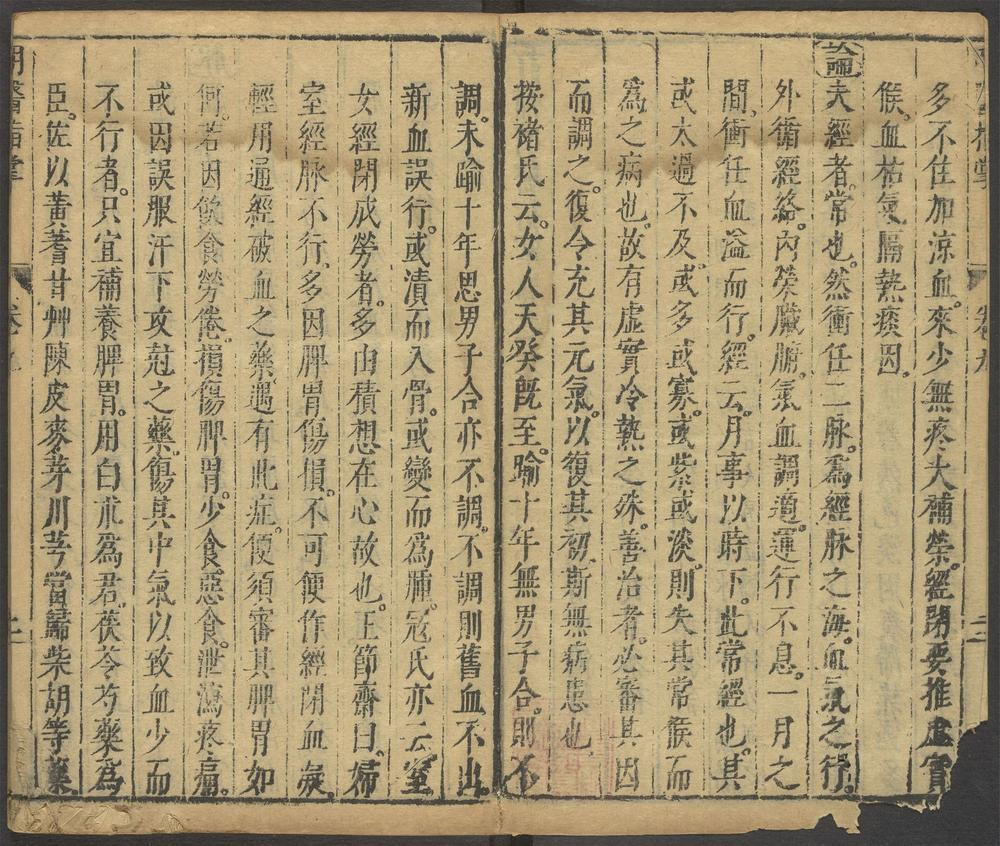 多不住加涼血。來少無疼大補榮。經閉要推虛實
候。血枯氣隔熱痰因。
論夫經者。常也。然衝任二脉。爲經脉之海。血氣之行。
外循經絡。內榮臟腑。氣血調適。運行不息。一月之
間。衝任血溢而行。經云。月事以時下。此常經也。其
或太過不及。或多或寡。或紫或淡。則失其常候而
爲之病也。故有虛實冷熱之殊。善治者。必審其因
而調之。復令充其元氣。以復其初。斯無病患也。
按褚氏云。女人天癸既至。踰十年無男子合。則不
調。未踰十年。思男子合亦不調。不調則舊血不出。
新血誤行。或漬而入骨。或變而爲腫。冦氏亦云。室
女經閉成勞者。多由積想在心故也。王節齋曰。婦
室經脉不行。多因脾胃傷損。不可便作經閉血凝。
輕用通經破血之藥。遇有此症。便須審其脾胃如
何。若因飲食勞倦。損傷脾胃。少食惡食。泄瀉疼痛。
或因誤服汗下攻尅之藥。傷其中氣以致血少而
不行者。只宜補養脾胃。用白朮爲君。茯苓芍藥爲
臣。佐以黃耆甘艸陳皮麥芽川芎當歸柴胡等藥。
卷九
二